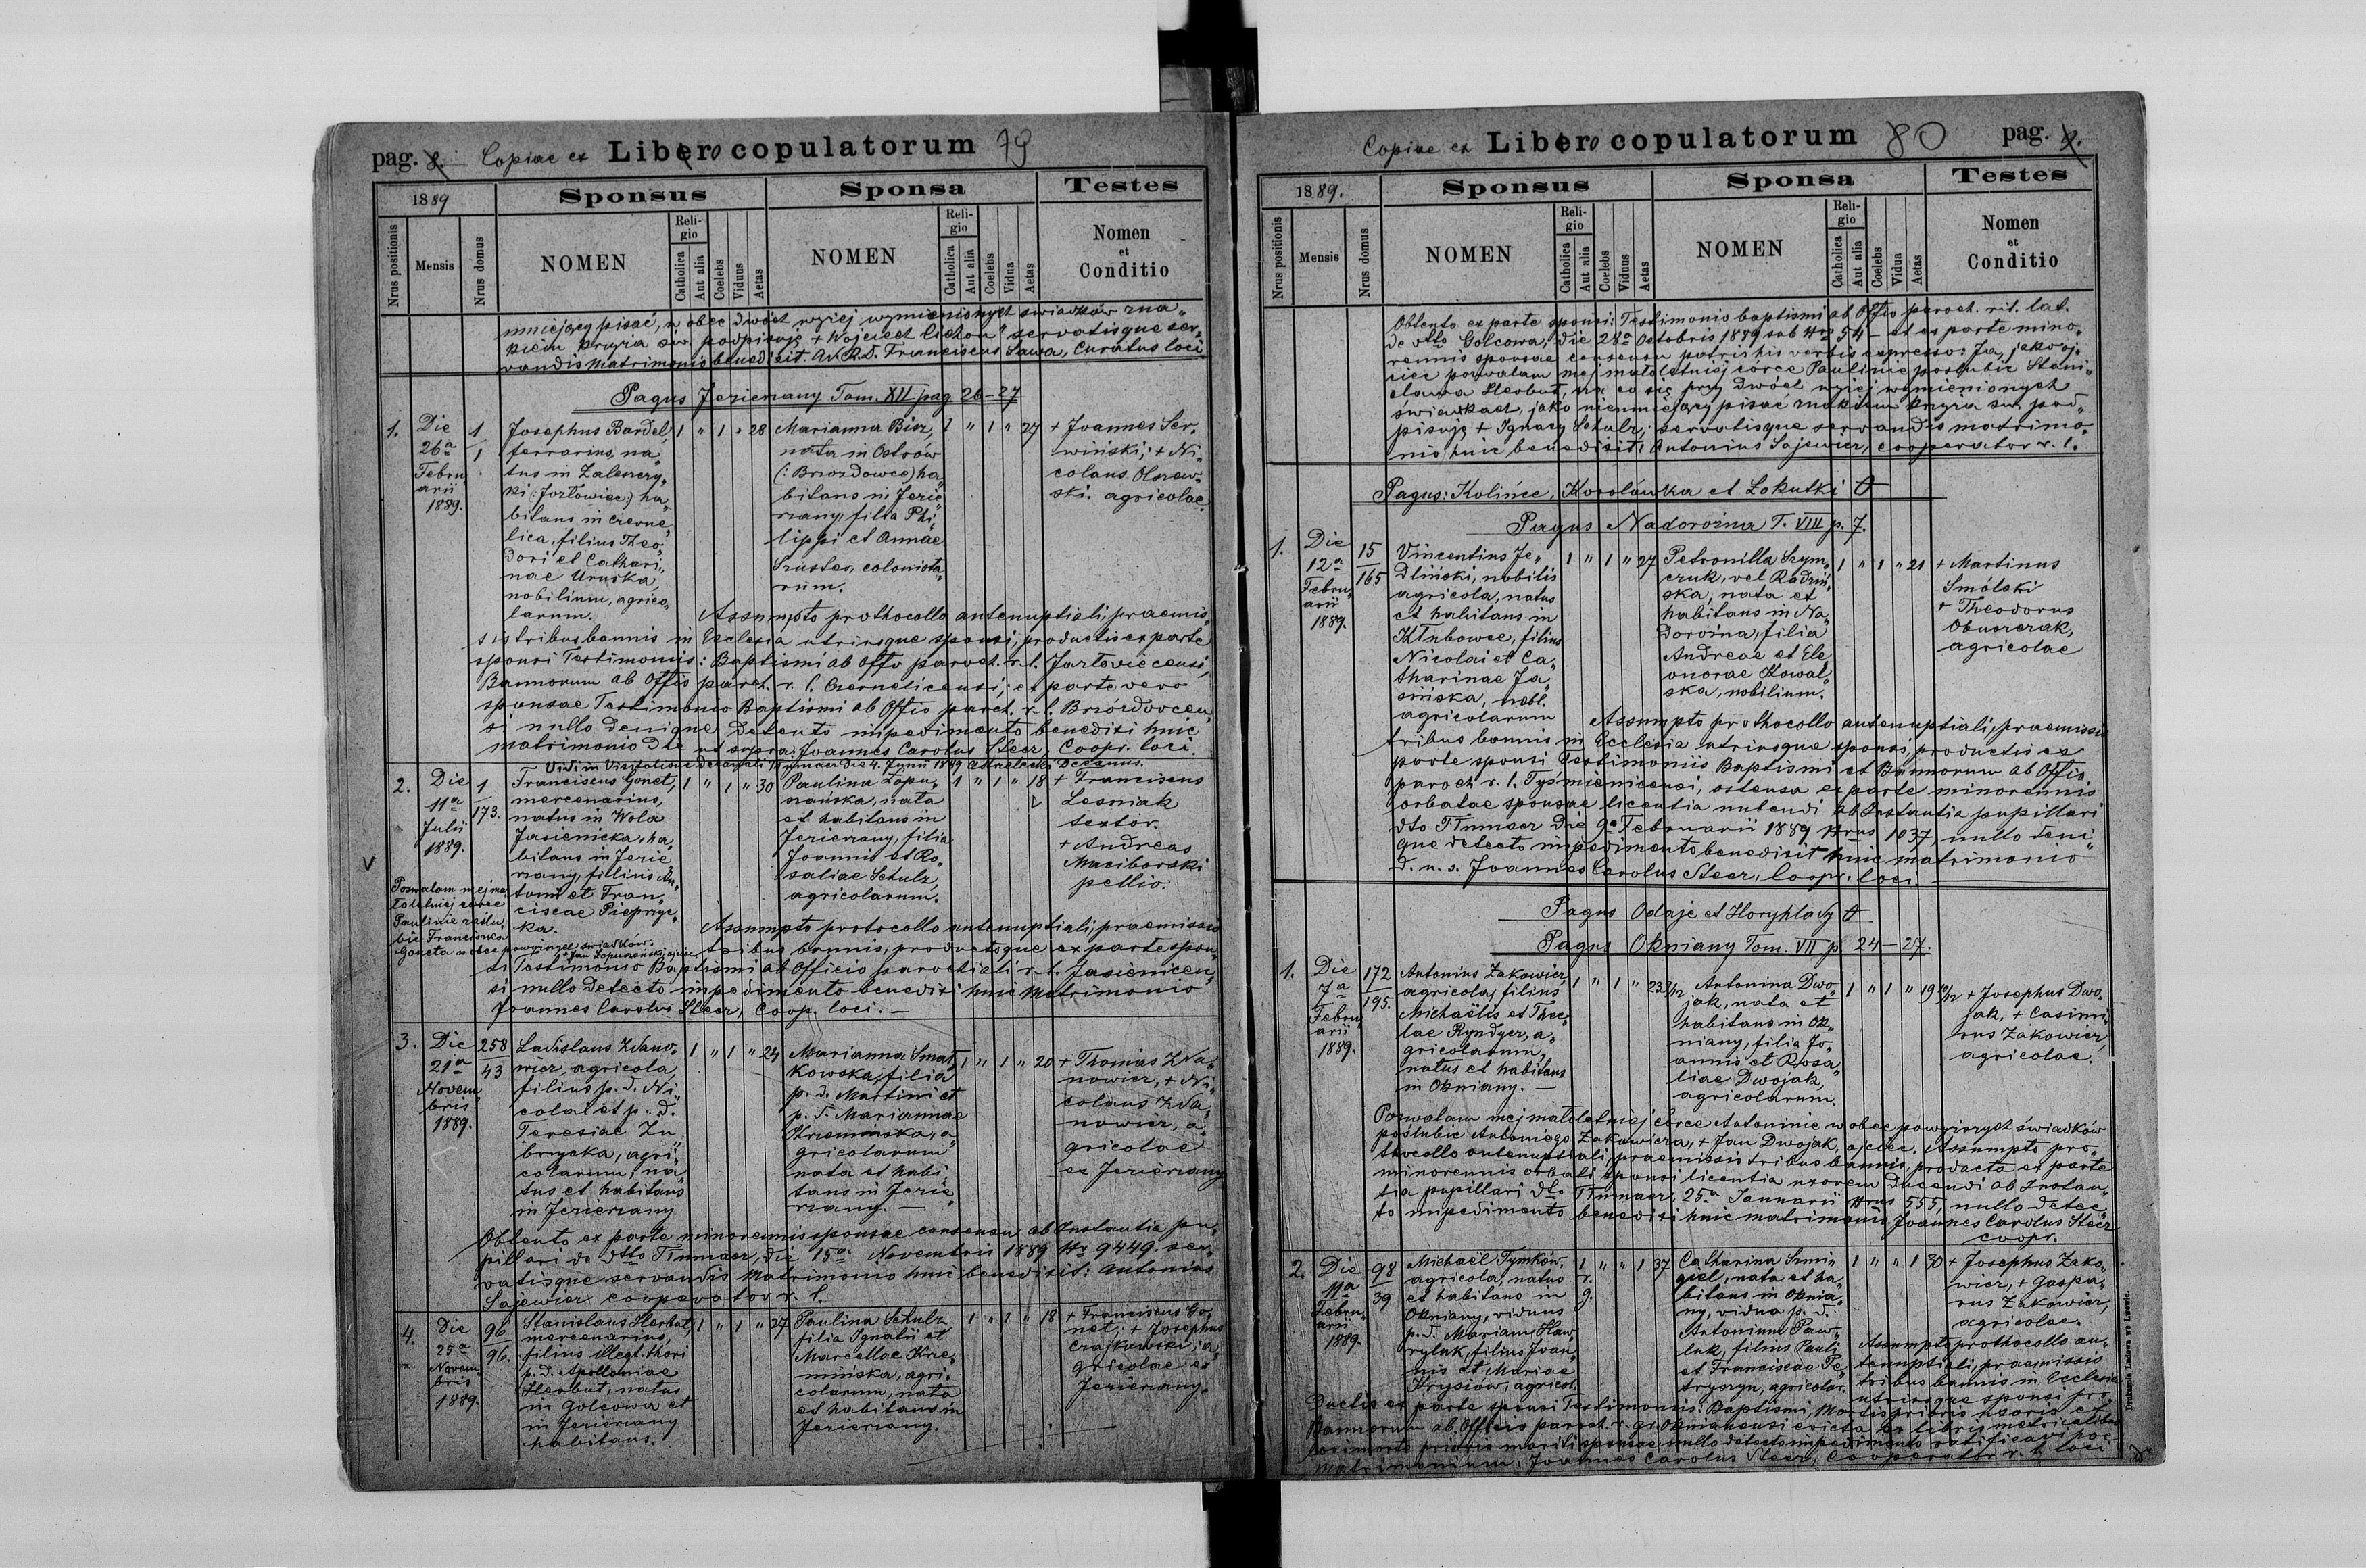 pag. 2. Copiae ex Libero copulatorum 79
1889
Sponsus
Sponsa
Testes
Nrus positionis
Mensis
Nrus domus
NOMEN
Religio
Catholica
Aut alia
Coelebs
Viduus
Aetas
NOMEN
Religio
Catholica
Aut alia
Coelebs
Vidua
Aetas
Nomen
et
Conditio
mniejący pisać, w obec dwóch wyżej wymienionych świadków zna„
kiem krzyża św. podpisuję + Wojciech Cichon" servatisque ser„
vandis Matrimonio bened: sit. A.R.d. Franciscus Sawa, Curatus loci
Pagus Jezierzany Tom. XII pag 26–27
1.
Die
26a
Febru„
arii
1889.
1
1
Josephus Bardel,
ferrarius, na„
tus in Zaleszczy„
ki (: Jazłowiec:) ha„
bitans in Czerne„
lica, filius Theo„
dori et Cathari„
nae Uruska,
nobilium, agrico„
larum.
1 " 1 " 28
Marianna Bisz,
nata in Ostrów
(: Brzozdowce) ha„
bitans in Jezie„
rzany, filia Phi„
lippi et Annae
Szuster, colonista„
rum.
1 " 1 " 27
+ Joannes Ser„
wiński; + Ni„
colaus Olszew„
ski. agricolae.
Assumpto prothocollo antenuptiali, praemis„
sis tribus bannis in Ecclesia utriusque sponsi, productis ex parte
sponsi Testimoniis: Baptismi ab Offo paroch. r. l. Jazłoviecensi,
Bannorum ab Offo paroch. r. l. Czernelicensi; ex parte vero
sponsae Testimonio Baptismi ab Offio paroch. r. l. Brzozdovcen„
si nullo denique detento impedimento benedixi huic
matrimonio die ut supra. Joannes Carolus Steer, Coopr. loci.
Vidi in Visitatione Decanali Tłumacz die 4. Junii 1889 Decanus.
2.
Die
11a
Julii
1889.
1
173.
Franciscus Gonet,
mercenarius,
natus in Wola
Jasienicka, ha„
bitans in Jezie„
rzany, filius An„
toni et Fran„
ciscae Pieprzyc„
ka.
1 " 1 " 30
Paulina Łopu„
szańska, nata
et habitans in
Jezierzany, filia
Joannis et Ro„
saliae Schulz,
agricolarum.
1 " 1 " 18
+ Franciscus
Lesniak
textor.
+ Andreas
Maciborski
pellio.
V
Pozwalam mej ma„
łoletniej córce
Paulinie zaślu„
bić Franciszka
Goneta w obec powyższych świadków.
+ Jan Łopuszański, ojciec
Assumpto protocollo antenuptiali, praemissis
tribus bannis, productoque ex parte spon„
si Testimonio Baptismi ab Officio parochiali r. l. Jasienicen„
si nullo detecto impedimento benedixi huic Matrimonio
Joannes Carolus Steer, Coop. loci. —
3.
Die
21a
Novem„
bris
1889.
258
43
Ladislaus Zdano„
wicz, agricola,
filius p. d. Ni„
colai et p. d.
Teresiae Zu„
brzycka, agri„
colarum, na„
tus et habitans
in Jezierzany
1 " 1 " 24
Marianna Smat„
kowska, filia
p. d. Martini et
p. d. Mariannae
Krzemińska, a„
gricolarum
nata et habi„
tans in Jezie„
rzany. —
1 " 1 " 20
+ Thomas Zda„
nowicz, + Ni„
colaus Zda„
nowicz, a„
gricolae
ex Jezierzany
Obtento ex parte minorennis sponsae consensu ab Instantia pu„
pillari de dtto Tłumacz, die 15a Novembris 1889 Nr 9449. ser„
vatisque servandis Matrimonio huic benedixit: Antonius
Sajewicz cooperator r. l.
4.
Die
25a
Novem„
bris
1889.
96
96.
Stanislaus Herbut,
mercenarius,
filius illegt. thori
p. d. Apolloniae
Herbut, natus
in Golcowa et
in Jezierzany
habitans.
1 " 1 " 27
Paulina Schulz
filia Ignatii et
Marcellae Krze„
mińska, agri„
colarum, nata
et habitans in
Jezierzany.
1 " 1 " 18
+ Franciscus Go„
net; + Josephus
Czajkowski, a„
gricolae ex
Jezierzany.
Copiae ex Libero copulatorum 80 pag. 2.
1889.
Sponsus
Sponsa
Testes
Nrus positionis
Mensis
Nrus domus
NOMEN
Religio
Catholica
Aut alia
Coelebs
Viduus
Aetas
NOMEN
Religio
Catholica
Aut alia
Coelebs
Vidua
Aetas
Nomen
et
Conditio
Obtento ex parte sponsi: Testimonio baptismi ab Offio paroch. rit. lat.
de dtto Golcowa, die 28a Octobris 1889 sub Nro 54 – et ex parte mino„
rennis sponsae consensu patrii his verbis expresso: Ja, jako oj„
ciec pozwalam mej małoletniej córce Paulinie poślubić Stani„
sława Herbut, na co się przy dwóch niżej wymienionych
świadkach, jako nieumiejący pisać znakiem krzyża św. pod„
pisuję + Ignacy Schulz; servatisque servandis matrimo„
nio huic benedixit: Antonius Sajewicz, cooperator r. l.
Pagus: Kolińce, Korolówka et Łokutki 0
Pagus Nadorożna T. VIII p. 7.
1.
Die
12a
Febru„
arii
1889.
15
165
Vincentius Je„
dliński, nobilis
agricola, natus
et habitans in
Kłubowce, filius
Nicolai et Ca„
tharinae Ja„
sińska, nobl.
agricolarum
1 " 1 " 27
Petronilla Szym„
czuk, vel Radziń„
ska, nata et
habitans in Na„
dorożna, filia
Andreae et Ele„
onorae Kowal„
ska, nobilium.
1 " 1 " 21
+ Martinus
Smólski
+ Theodorus
Obuszczak,
agricolae
Assumpto prothocollo antenuptiali, praemissis
tribus bannis in Ecclesia utriusque sponsi, productis ex
parte sponsi Testimoniis Baptismi et Bannorum ab Offio
paroch r. l. Tyśmienicensi, ostensa ex parte minorennis
orbatae sponsae licentia nubendi ab Instantia pupillari
dto Tłumacz die 9a Februarii 1889 Nrus 1037, nullo deni„
que detecto impedimento benedixit huic matrimonio
d. u. s. Joannes Carolus Steer, Coopr. loci.
Pagus Odaje et Horyhlady 0
Pagus Okniany Tom. VII p. 24–27.
1.
Die
7a
Febru„
arii
1889.
172
195.
Antonius Zakowicz,
agricola, filius
Michaëlis et Thec„
lae Ryndycz, a„
gricolarum,
natus et habitans
in Okniany. —
1 " 1 " 23
Antonina Dwo„
jak, nata et
habitans in Ok„
niany, filia Jo„
annis et Rosa„
liae Dwojak,
agricolarum.
1 " 1 " 19
+ Josephus Dwo„
jak, + Casimi„
rus Zakowicz,
agricolae.
Pozwalam mej małoletniej córce Antoninie w obec powyższych świadków
poślubić Antoniego Zakowicza, + Jan Dwojak, ojciec. Assumpto pro„
thocollo antenuptiali, praemissis tribus bannis, producta ex parte
minorennis orbati sponsi licentia uxorem ducendi ab Instan„
tia pupillari dto Tłumacz, 25a Januarii Nrus 555, nullo detec„
to impedimento benedixi huic matrimonio Joannes Carolus Steer
coopr.
2.
Die
11a
Febru„
arii
1889.
98
39
Michaël Tymków,
agricola, natus
et habitans in
Okniany, viduus
p. d. Mariam Haw„
ryluk, filius Joan„
nis et Mariae
Krysiów, agricol.
1 r. g. " " 1 37
Catharina Smi„
giel, nata et ha„
bitans in Oknia„
ny, vidua p. d.
Antonium Paw„
luk, filius Pauli
et Franciscae Pe„
tryszyn, agricolar.
1 " " 1 30
+ Josephus Zako„
wicz, + Gaspa„
rus Zakowicz,
agricolae.
Assumpto prothocollo an„
tenuptiali, praemissis
tribus bannis in Ecclesia
utriusque sponsi pro„
ductis ex parte sponsi Testimoniis: Baptismi, Mortis prioris uxoris et
Bannorum ab Officio paroch. r. gr. Oknianensi evicta ex libris metricalibus
morte prioris mariti sponsae nullo detecto impedimento ratificavi hoc
matrimonium. Joannes Carolus Steer, Cooperator r. l. loci
Drukarnia Ludowa we Lwowie.